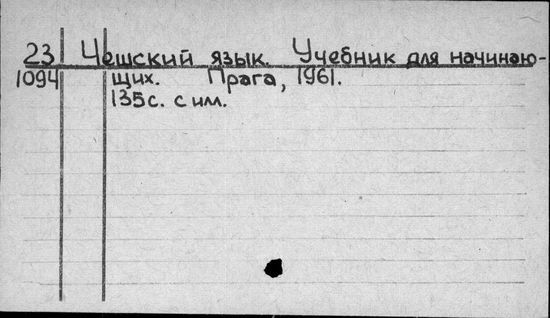 23 Чешский язык. Учебник для начинаю-
1094 щих. Прага, 1961.
135с. с ил.